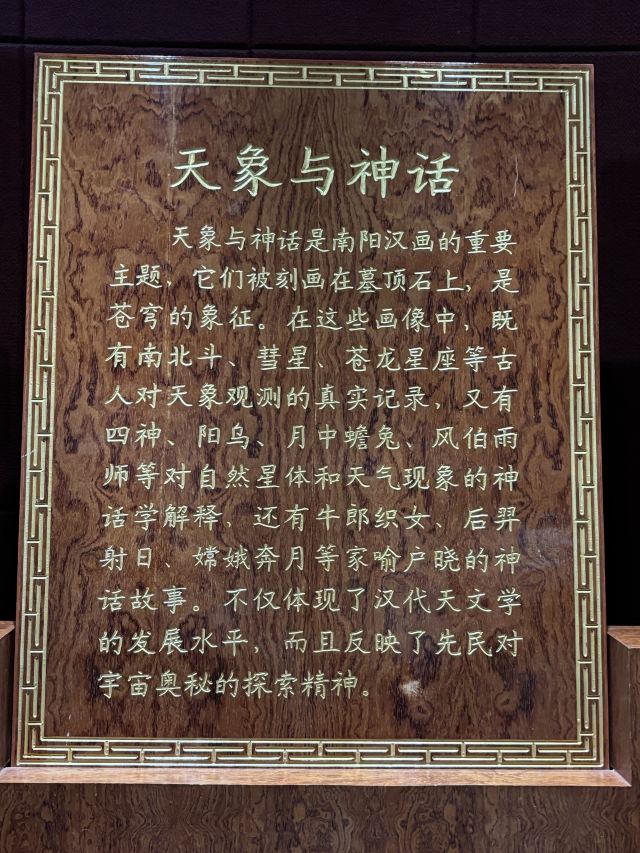 天象与神话
天象与神话是南阳汉画的重要
主题，它们被刻画在墓顶石上，是
苍穹的象征。在这些画像中，既
有南北斗、彗星、苍龙星座等古
人对天象观测的真实记录，又有
四神、阳乌、月中蟾兔、风伯雨
师等对自然星体和天气现象的神
话学解释，还有牛郎织女、后羿
射日、嫦娥奔月等家喻户晓的神
话故事。不仅体现了汉代天文学
的发展水平，而且反映了先民对
宇宙奥秘的探索精神。